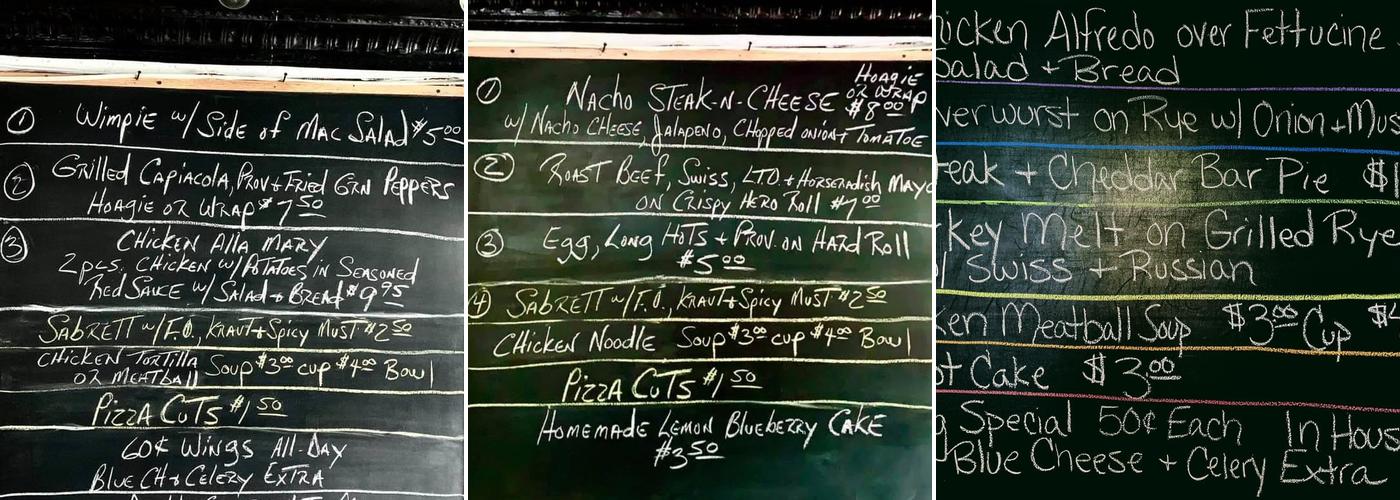 ① Wimpie w/ Side of Mac Salad $5.00
② Grilled Capiacola, Prov + Fried Grn Peppers
Hoagie or Wrap $7.50
③ Chicken Alla Mary
2 pcs. Chicken w/ Potatoes in Seasoned
Red Sauce w/ Salad + Bread $9.95
Sabrett w/ F.O., Kraut + Spicy Must $2.50
Chicken Tortilla
or Meatball Soup $3.00 cup $4.00 Bowl
Pizza Cuts $1.50
60¢ Wings All-Day
Blue Ch + Celery Extra
① Nacho Steak-N-Cheese Hoagie
or Wrap
$8.00
w/ Nacho Cheese, Jalapeno, Chopped onion + Tomatoe
② Roast Beef, Swiss, L.T.O. + Horseradish Mayo
on Crispy Hero Roll $7.00
③ Egg, Long Hots + Prov. on Hard Roll
$5.00
④ Sabrett w/ F.O., Kraut + Spicy Must $2.50
Chicken Noodle Soup $3.00 cup $4.00 Bowl
Pizza Cuts $1.50
Homemade Lemon Blueberry Cake
$3.50
icken Alfredo over Fettucine
Salad + Bread
verwurst on Rye w/ Onion + Mus
eak + Cheddar Bar Pie $1
key Melt on Grilled Rye
w/ Swiss + Russian
ken Meatball Soup $3.00 Cup $4
ot Cake $3.00
g Special 50¢ Each In Hous
Blue Cheese + Celery Extra